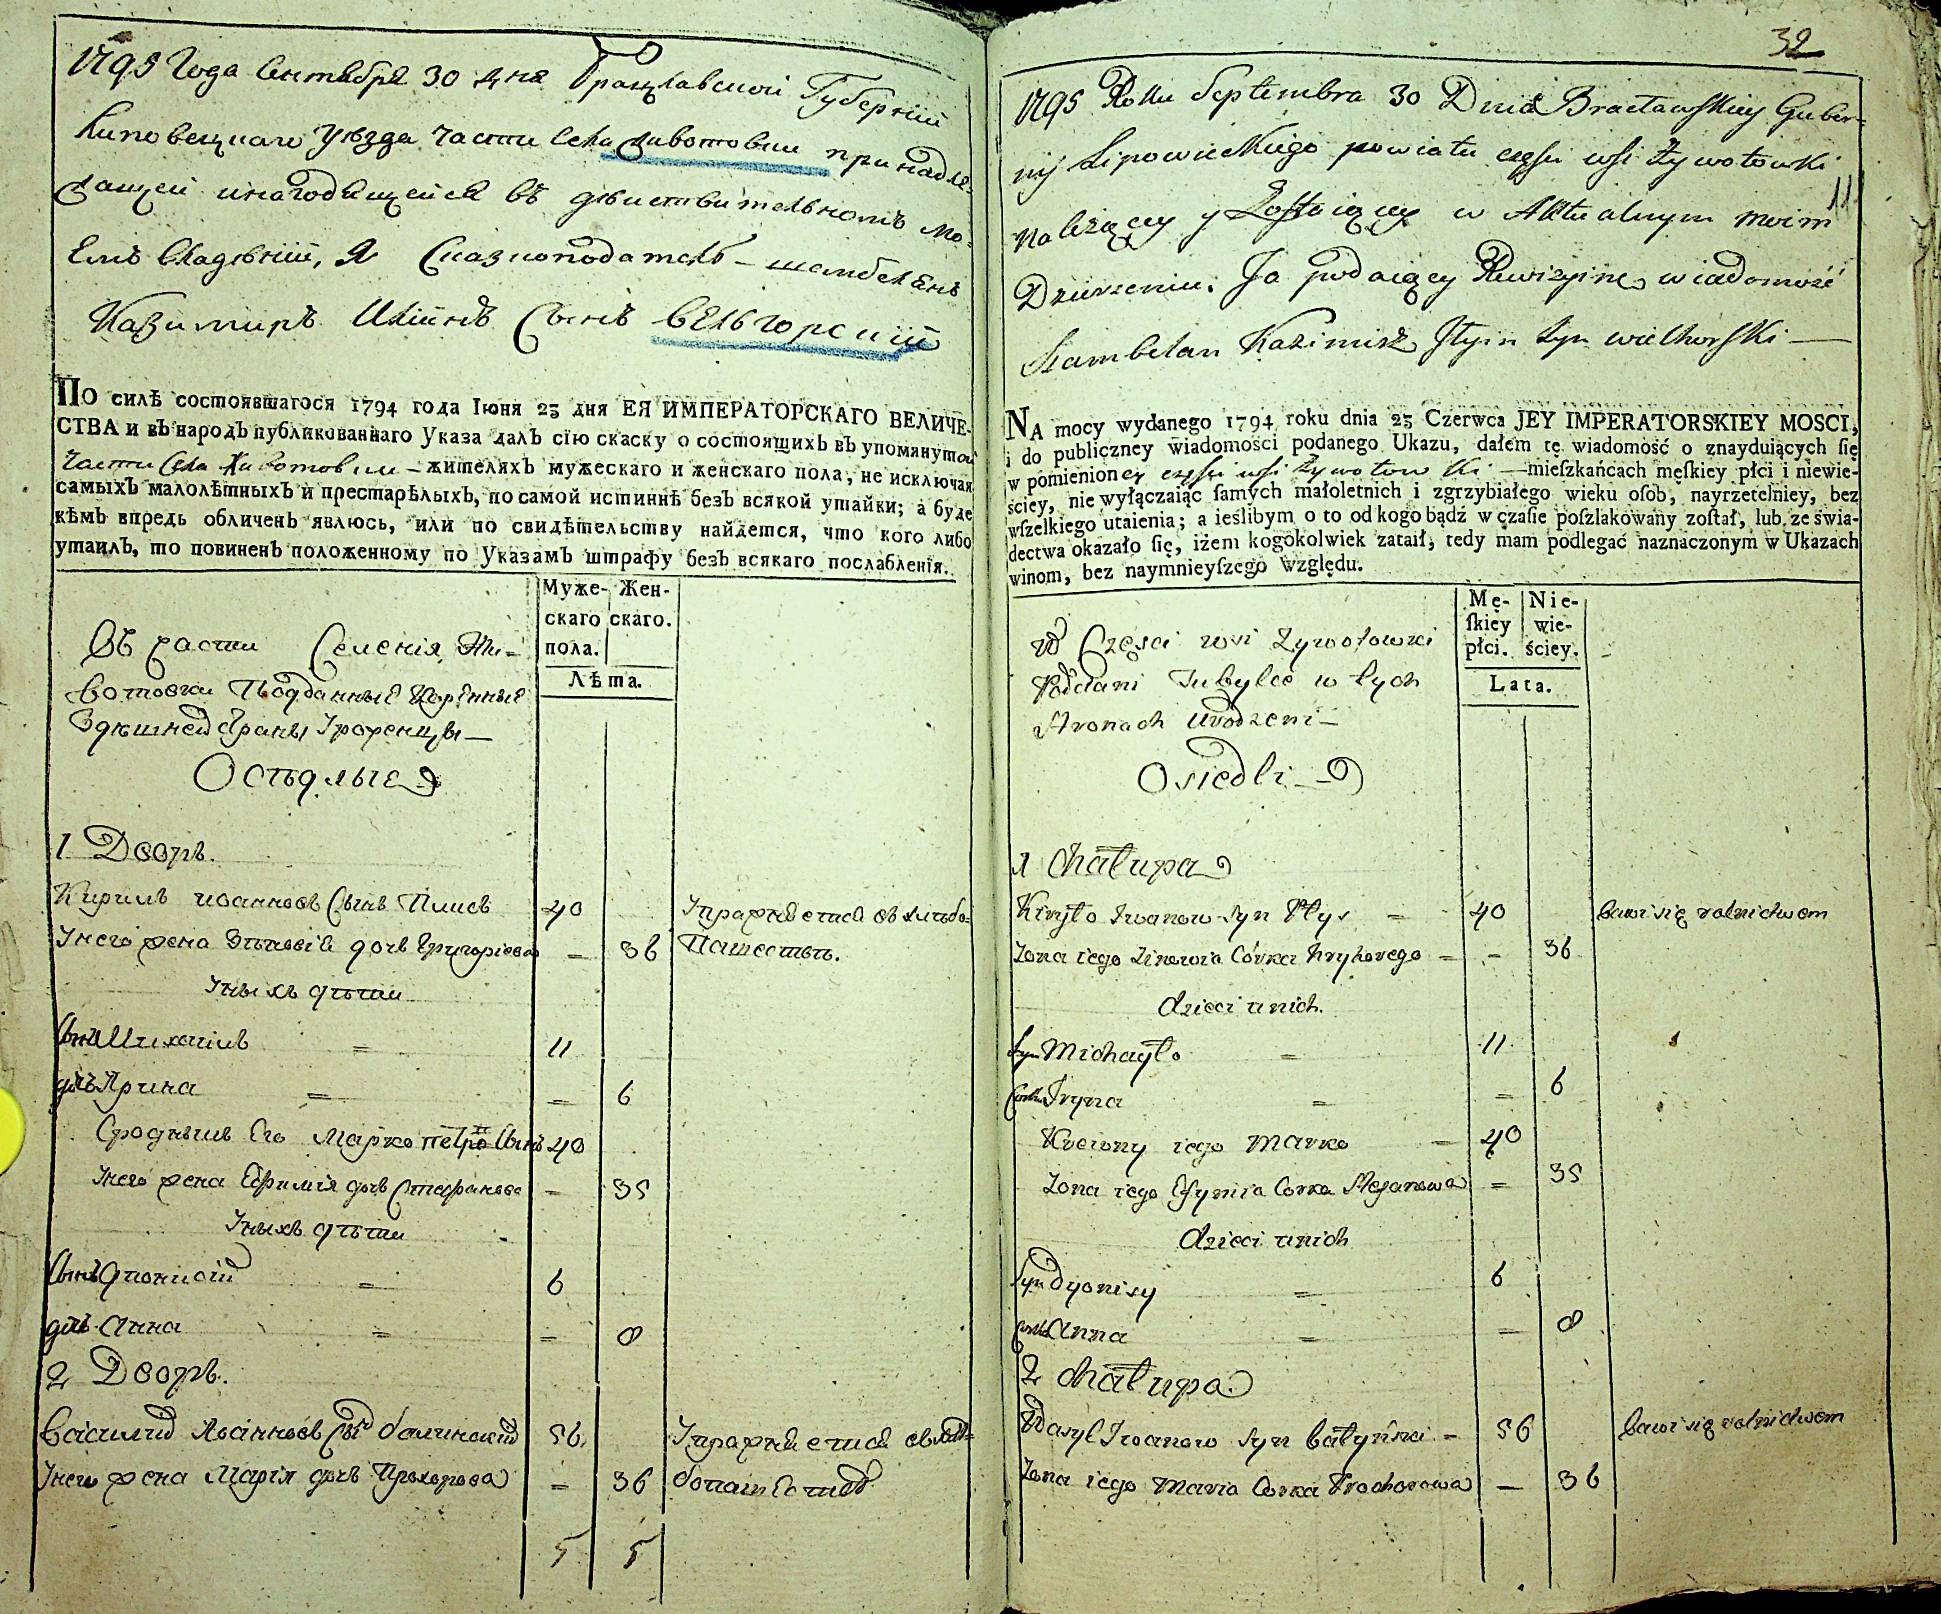 1795 Года Сентября 30 дня Брацлавской Губернїи
Липовецкаго уѣзда части села Животовки принадле-
жащей инаходящейся въ дѣйствительномъ мо-
емъ владѣнїи, Я Сказкоподатель – шамбелянъ
Казимиръ Ильинъ Сынъ Вельгорскїй
ПО силѣ состоявшагося 1794 года Іюня 23 дня ЕЯ ИМПЕРАТОРСКАГО ВЕЛИЧЕ-
СТВА и въ народъ публикованнаго Указа далъ сїю скаску о состоящихъ въ упомянутой
части села Животовки – жителяхъ мужескаго и женскаго пола, не исключая
самыхъ малолѣтныхъ и престарѣлыхъ, по самой истиннѣ безъ всякой утайки; а буде
кѣмъ впредь обличенъ явлюсь, или по свидѣтельству найдется, что кого либо
утаилъ, то повиненъ положенному по Указамъ штрафу безъ всякаго послабленїя.
Муже- Жен-
скаго скаго.
пола.
Лѣта.
Въ части Селенія Жи-
вотовки Подданные Коренные
Здѣшней страны Уроженцы –
Осѣдлые
1 Дворъ.
Кирилъ иоанновъ Сынъ Плисъ 40 Упражняется въ хлѣбо-
Унего жена Зѣновія дочь Григоріева – 36 Пашествѣ.
Уныхъ дѣти
Сынъ Михаилъ = 11
дочь Ярина = – 6
Сродникъ Его Марко петро Сынъ 40
Унего жена Ефимія дочь Стефанова – 35
Уныхъ дѣти
Сынъ дионисїй = 6
дочь Анна = – 8
2 Дворъ.
Василий Иоанновъ Сынъ балинский 56 Упражняется вхлѣ-
Унего жена Марія дочь Прохорова – 36 бопашестве
5 5
32
1795 Roku Septembra 30 Dnia Bracławskiey Guber-
nij Lipowieckiego powiatu części wsi Żywotowki
11
Należącey y Zostaiącey w Aktualnym moim
Dzierżeniu. Ja podaiący Rewizyine wiadomość
Szambelan Kazimierz Ilyin Syn wielhorski –
NA mocy wydanego 1794 roku dnia 23 Czerwca JEY IMPERATORSKIEY MOSCI,
i do publiczney wiadomości podanego Ukazu, dałem tę wiadomość o znayduiących się
w pomienioney części wsi Żywotowki – mieſzkańcach męſkiey płci i niewie-
ściey, nie wyłączaiąc ſamych małoletnich i zgrzybiałego wieku osób, nayrzetelniey, bez
wſzelkiego utaienia; a ieślibym o to od kogo bądź w czaſie poſzlakowany zoſtał, lub ze świa-
dectwa okazało się, iżem kogokolwiek zataił, tedy mam podlegać naznaczonym w Ukazach
winom, bez naymnieyſzego względu.
Mę- Nie-
ſkiey wie-
płci. ściey.
Lata.
W Części wsi Zywotowki
Poddani Tubylcé w tych
Stronach Urodzeni –
Osiedli
1 Chałupa
Kiryło Iwanow Syn Płys – 40 bawi się rolnictwem
Zona iego Zinowia Córka hryhorego – – 36
dzieci unich.
Syn Michayło = 11
Corka Iryna = – 6
Krewny iego Marko – 40
Zona iego Efymia Corka Stefanowa – 35
dzieci unich
Syn dyonisy = 6
Corka Anna = – 8
2 Chałupa
Wasyl Iwanow Syn bałyński – 56 bawi się rolnictwem
Zona iego Maria Corka Prochorowa – 36